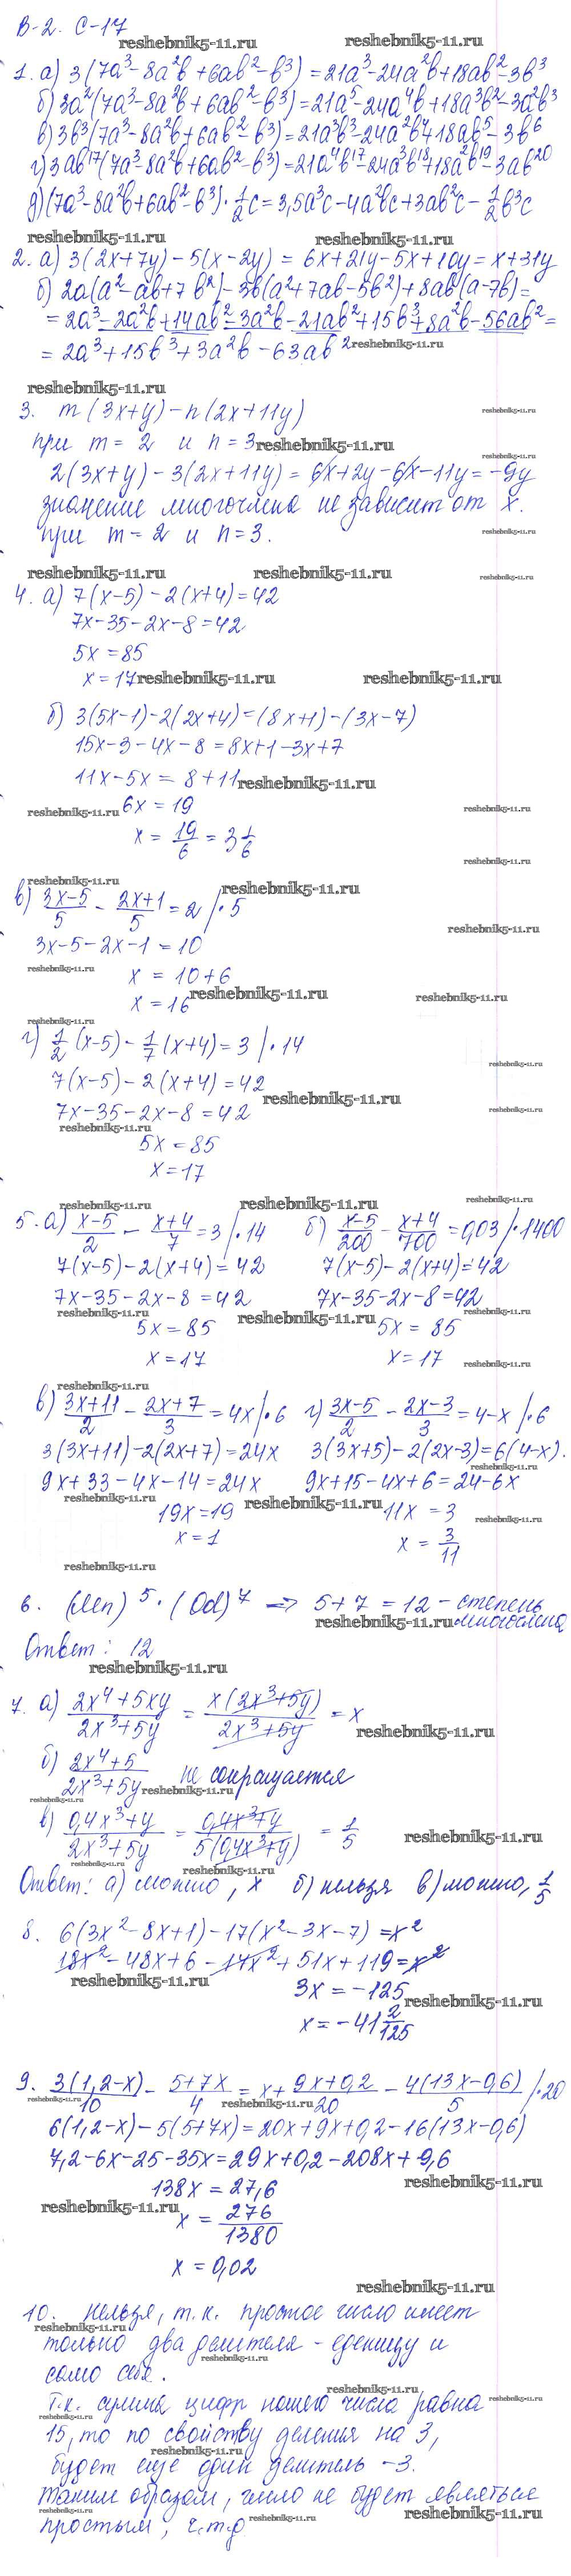 В-2. С-17
reshebnik5-11.ru reshebnik5-11.ru
1. а) 3(7a³-8a²b+6ab²-b³)=21a³-24a²b+18ab²-3b³
б) 3a²(7a³-8a²b+6ab²-b³)=21a⁵-24a⁴b+18a³b²-3a²b³
в) 3b³(7a³-8a²b+6ab²-b³)=21a³b³-24a²b⁴+18ab⁵-3b⁶
г) 3ab¹⁷(7a³-8a²b+6ab²-b³)=21a⁴b¹⁷-24a³b¹⁸+18a²b¹⁹-3ab²⁰
д) (7a³-8a²b+6ab²-b³)·1/2c=3,5a³c-4a²bc+3ab²c-1/2b³c
reshebnik5-11.ru reshebnik5-11.ru
2. а) 3(2x+7y)-5(x-2y)=6x+21y-5x+10y=x+31y
б) 2a(a²-ab+7b²)-3b(a²+7ab-5b²)+8ab(a-7b)=
=2a³-2a²b+14ab²-3a²b-21ab²+15b³+8a²b-56ab²=
=2a³+15b³+3a²b-63ab² reshebnik5-11.ru
reshebnik5-11.ru
3. m(3x+y)-n(2x+11y) reshebnik5-11.ru
при m=2 и n=3 reshebnik5-11.ru
2(3x+y)-3(2x+11y)=6x+2y-6x-11y=-9y
значение многочлена не зависит от x.
при m=2 и n=3. reshebnik5-11.ru
reshebnik5-11.ru reshebnik5-11.ru reshebnik5-11.ru
4. а) 7(x-5)-2(x+4)=42
7x-35-2x-8=42
5x=85
x=17 reshebnik5-11.ru reshebnik5-11.ru
б) 3(5x-1)-2(2x+4)=(8x+1)-(3x-7)
15x-3-4x-8=8x+1-3x+7
11x-5x=8+11 reshebnik5-11.ru
6x=19
reshebnik5-11.ru reshebnik5-11.ru
x=19/6=3 1/6
reshebnik5-11.ru
reshebnik5-11.ru reshebnik5-11.ru
в) (3x-5)/5-(2x+1)/5=2 /·5
reshebnik5-11.ru
3x-5-2x-1=10
reshebnik5-11.ru x=10+6
x=16 reshebnik5-11.ru reshebnik5-11.ru
reshebnik5-11.ru
г) 1/2(x-5)-1/7(x+4)=3 /·14
reshebnik5-11.ru
7(x-5)-2(x+4)=42
reshebnik5-11.ru
7x-35-2x-8=42 reshebnik5-11.ru
reshebnik5-11.ru
5x=85
x=17
reshebnik5-11.ru reshebnik5-11.ru reshebnik5-11.ru
5. а) (x-5)/2-(x+4)/7=3 /·14 б) (x-5)/200-(x+4)/700=0,03 /·1400
7(x-5)-2(x+4)=42 7(x-5)-2(x+4)=42
7x-35-2x-8=42 7x-35-2x-8=42
reshebnik5-11.ru reshebnik5-11.ru reshebnik5-11.ru
5x=85 5x=85
x=17 x=17 reshebnik5-11.ru
reshebnik5-11.ru
в) (3x+11)/2-(2x+7)/3=4x /·6 г) (3x-5)/2-(2x-3)/3=4-x /·6
3(3x+11)-2(2x+7)=24x 3(3x+5)-2(2x-3)=6(4-x).
reshebnik5-11.ru
9x+33-4x-14=24x 9x+15-4x+6=24-6x
reshebnik5-11.ru reshebnik5-11.ru
19x=19 11x=3 reshebnik5-11.ru
x=1 x=3/11
reshebnik5-11.ru
6. (Mn)⁵·(Od)⁷ ⇒ 5+7=12-степень
reshebnik5-11.ru многочлена
Ответ: 12
reshebnik5-11.ru
7. а) (2x⁴+5xy)/(2x³+5y)=x(2x³+5y)/(2x³+5y)=x
reshebnik5-11.ru
б) (2x⁴+5)/(2x³+5y) не сокращается
reshebnik5-11.ru reshebnik5-11.ru
в) (0,4x³+y)/(2x³+5y)=(0,4x³+y)/5(0,4x³+y)=1/5
reshebnik5-11.ru
reshebnik5-11.ru reshebnik5-11.ru
Ответ: а) можно, x б) нельзя в) можно, 1/5
8. 6(3x²-8x+1)-17(x²-3x-7)=x²
18x²-48x+6-17x²+51x+119=x²
reshebnik5-11.ru
3x=-125
reshebnik5-11.ru
x=-41 2/125
9. 3(1,2-x)/10-(5+7x)/4=x+(9x+0,2)/20-4(13x-0,6)/5 /·20
reshebnik5-11.ru
6(1,2-x)-5(5+7x)=20x+9x+0,2-16(13x-0,6)
7,2-6x-25-35x=29x+0,2-208x+9,6
reshebnik5-11.ru
138x=27,6
reshebnik5-11.ru
x=276/1380
reshebnik5-11.ru
x=0,02
reshebnik5-11.ru
10. Нельзя, т.к. простое число имеет
reshebnik5-11.ru
только два делителя - еденицу и
reshebnik5-11.ru
само себя.
reshebnik5-11.ru
Т.к. сумма цифр нашего числа равна
reshebnik5-11.ru reshebnik5-11.ru
15, то по свойству деления на 3,
reshebnik5-11.ru
будет еще один делитель -3.
Таким образом, число не будет являться
reshebnik5-11.ru reshebnik5-11.ru reshebnik5-11.ru
простым, ч.т.д.